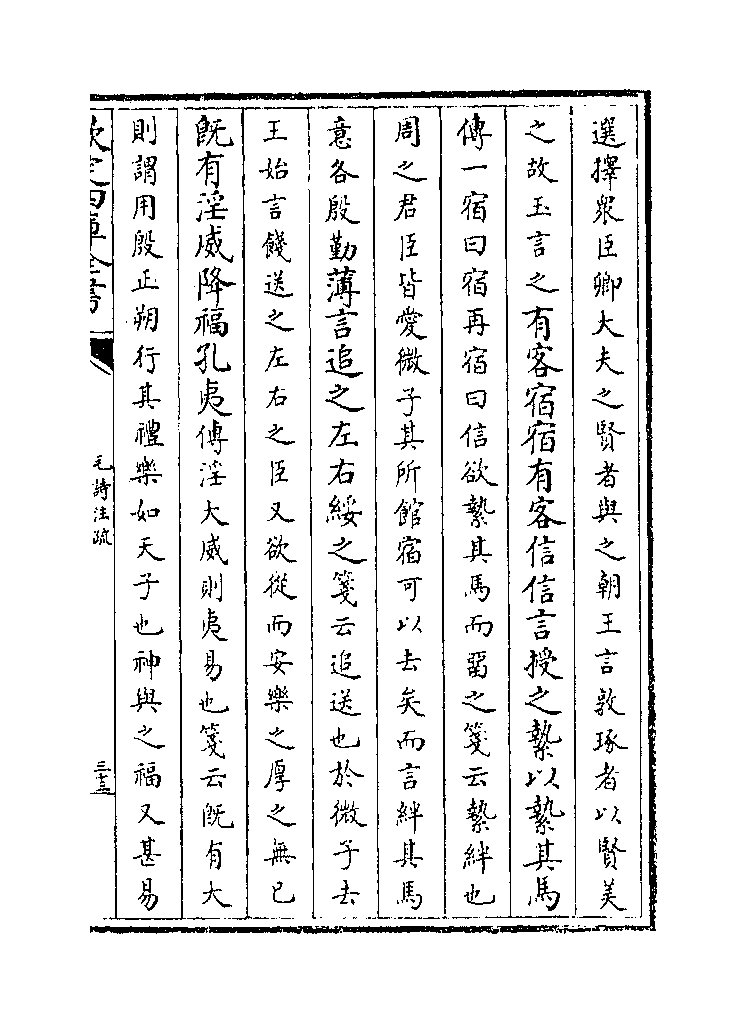 選擇衆臣卿大夫之賢者與之朝王言敦琢者以賢美
之故玉言之有客宿宿有客信信言授之縶以縶其馬
傳一宿曰宿再宿曰信欲縶其馬而留之箋云縶絆也
周之君臣皆愛微子其所館宿可以去矣而言絆其馬
意各殷勤薄言追之左右綏之箋云追送也於微子去
王始言餞送之左右之臣又欲從而安樂之厚之無已
既有淫威降福孔夷傳淫大威則夷易也箋云既有大
則謂用殷正朔行其禮樂如天子也神與之福又甚易
欽定四庫全書
毛詩注疏
三十三